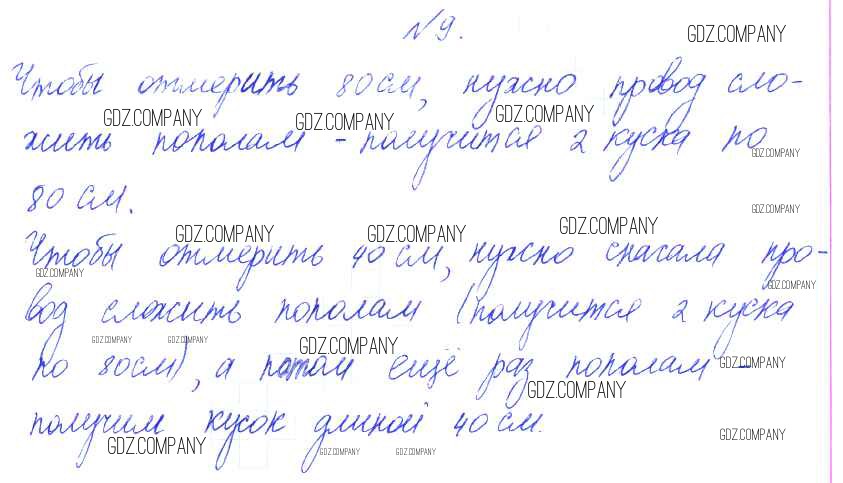 №9.
GDZ.COMPANY
Чтобы отмерить 80 см, нужно провод сло-
GDZ.COMPANY GDZ.COMPANY GDZ.COMPANY
жить пополам - получится 2 куска по
GDZ.COMPANY
80 см.
GDZ.COMPANY
GDZ.COMPANY GDZ.COMPANY GDZ.COMPANY
Чтобы отмерить 40 см, нужно сначала про-
GDZ.COMPANY GDZ.COMPANY
вод сложить пополам (получится 2 куска
GDZ.COMPANY GDZ.COMPANY GDZ.COMPANY
по 80см), а потом ещё раз пополам -
GDZ.COMPANY
GDZ.COMPANY
получим кусок длиной 40 см.
GDZ.COMPANY
GDZ.COMPANY GDZ.COMPANY GDZ.COMPANY